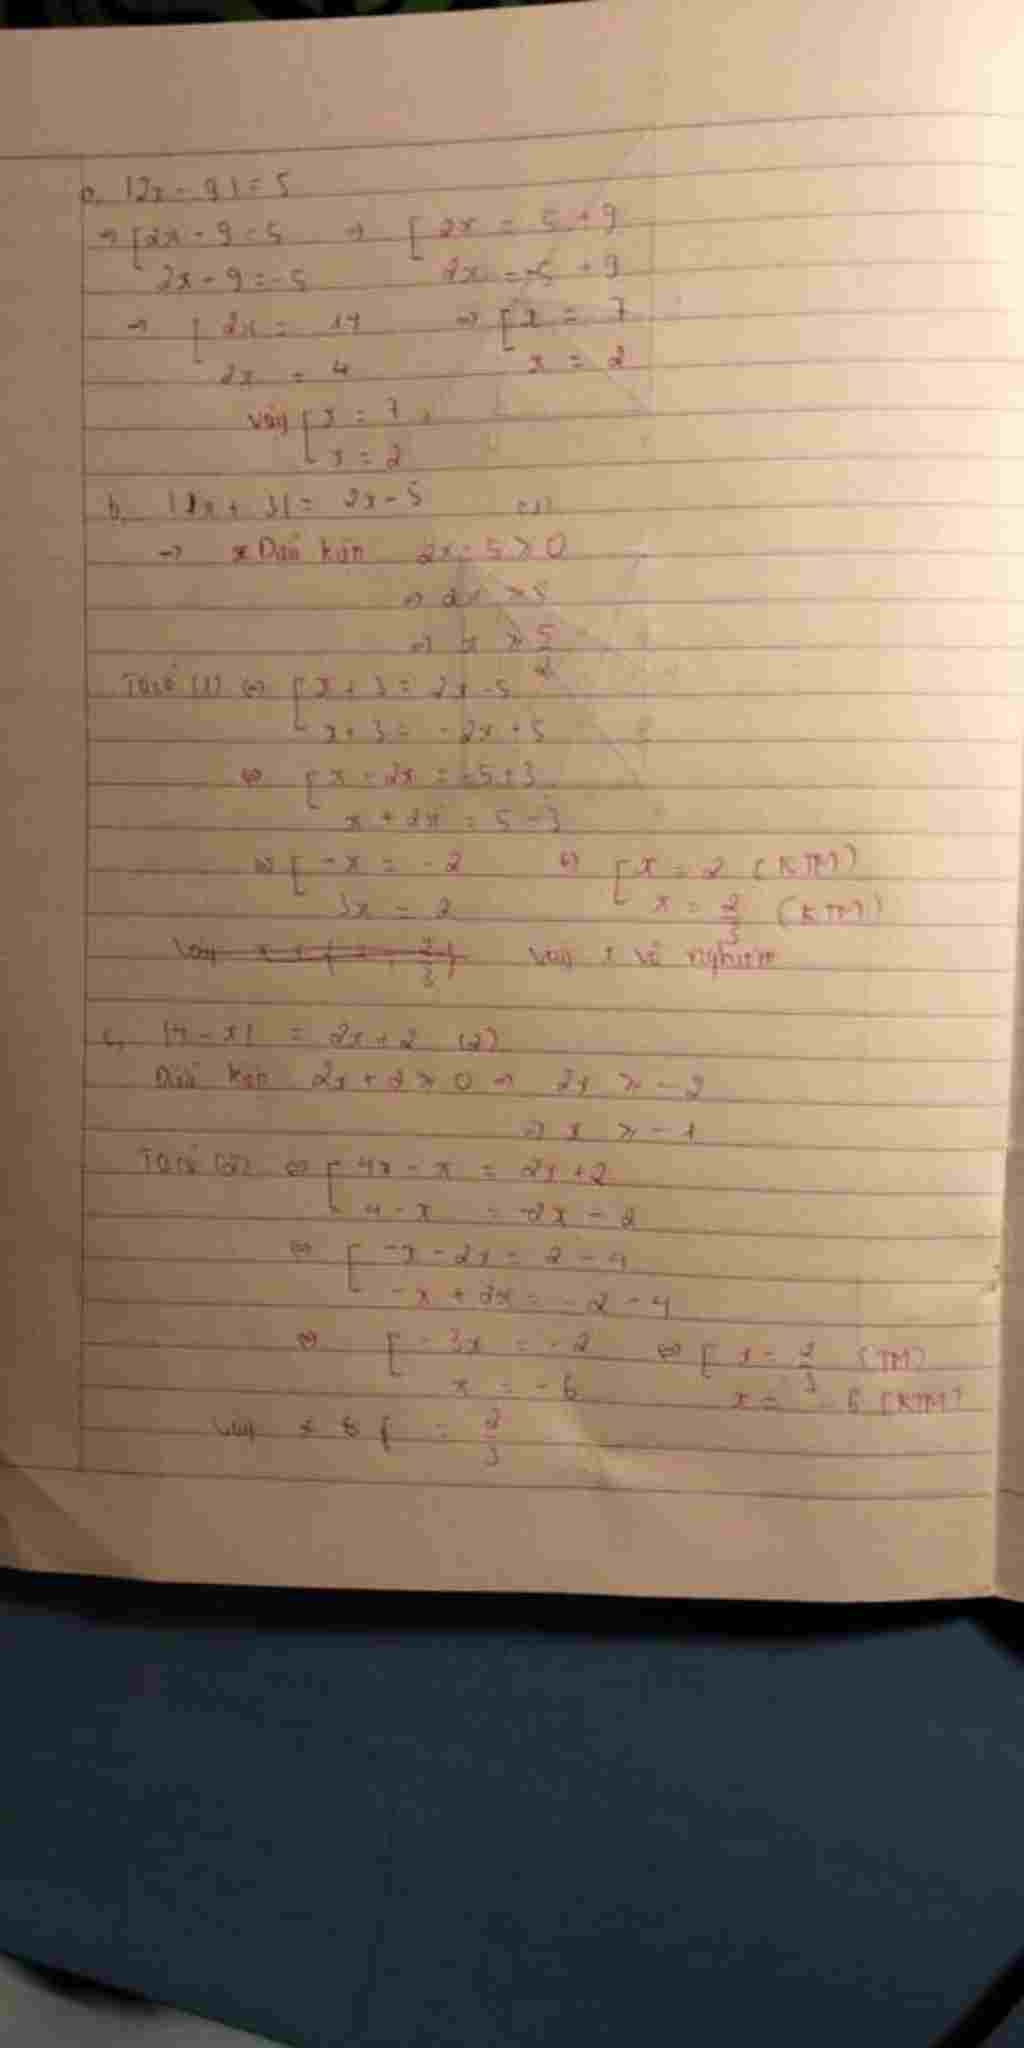 a, |2x - 9| = 5
=> [ 2x - 9 = 5 => [ 2x = 5 + 9
2x - 9 = -5 2x = -5 + 9
=> [ 2x = 14 => [ x = 7
2x = 4 x = 2
Vậy [ x = 7
x = 2
b, |x + 3| = 2x - 5 (1)
=> * Điều kiện 2x - 5 ≥ 0
=> 2x ≥ 5
=> x ≥ 5/2
Ta có (1) <=> [ x + 3 = 2x - 5
x + 3 = -2x + 5
<=> [ x - 2x = -5 + 3
x + 2x = 5 - 3
<=> [ -x = -2 <=> [ x = 2 (KTM)
3x = 2 x = 2/3 (KTM)
Vậy x vô nghiệm
c, |4 - x| = 2x + 2 (2)
Điều kiện 2x + 2 ≥ 0 => 2x ≥ -2
=> x ≥ -1
Ta có (2) <=> [ 4x - x = 2x + 2
4 - x = -2x - 2
<=> [ -x - 2x = 2 - 4
-x + 2x = -2 - 4
<=> [ -3x = -2 <=> [ x = 2/3 (TM)
x = -6 x = -6 (KTM)
Vậy x = 2/3